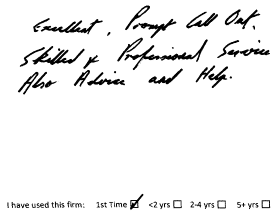 Excellent, Prompt Call Out.
Skilled & Professional Service
Also Advice and Help.
I have used this firm: 1st Time ☑ <2 yrs ☐ 2-4 yrs ☐ 5+ yrs ☐